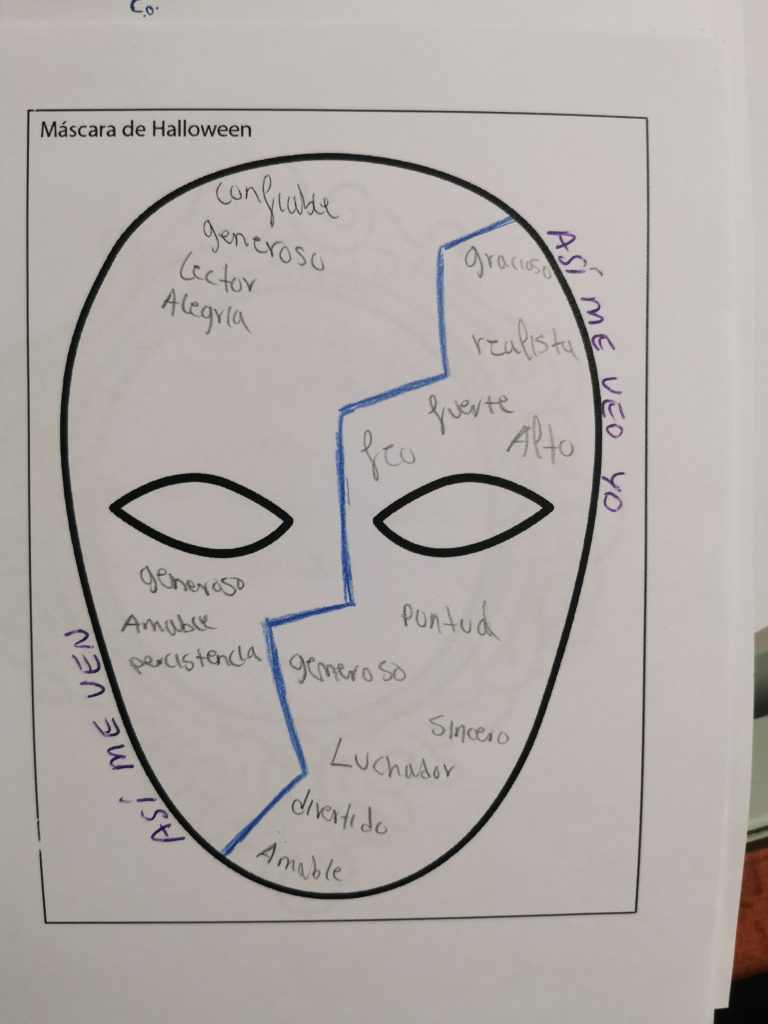 Co.
Máscara de Halloween
confiable
generoso
Lector
Alegria
ASÍ ME VEO YO
gracioso
realista
fuerte
Alto
feo
generoso
Amable
percistencia
ASÍ ME VEN
pontual
generoso
Sincero
Luchador
divertido
Amable